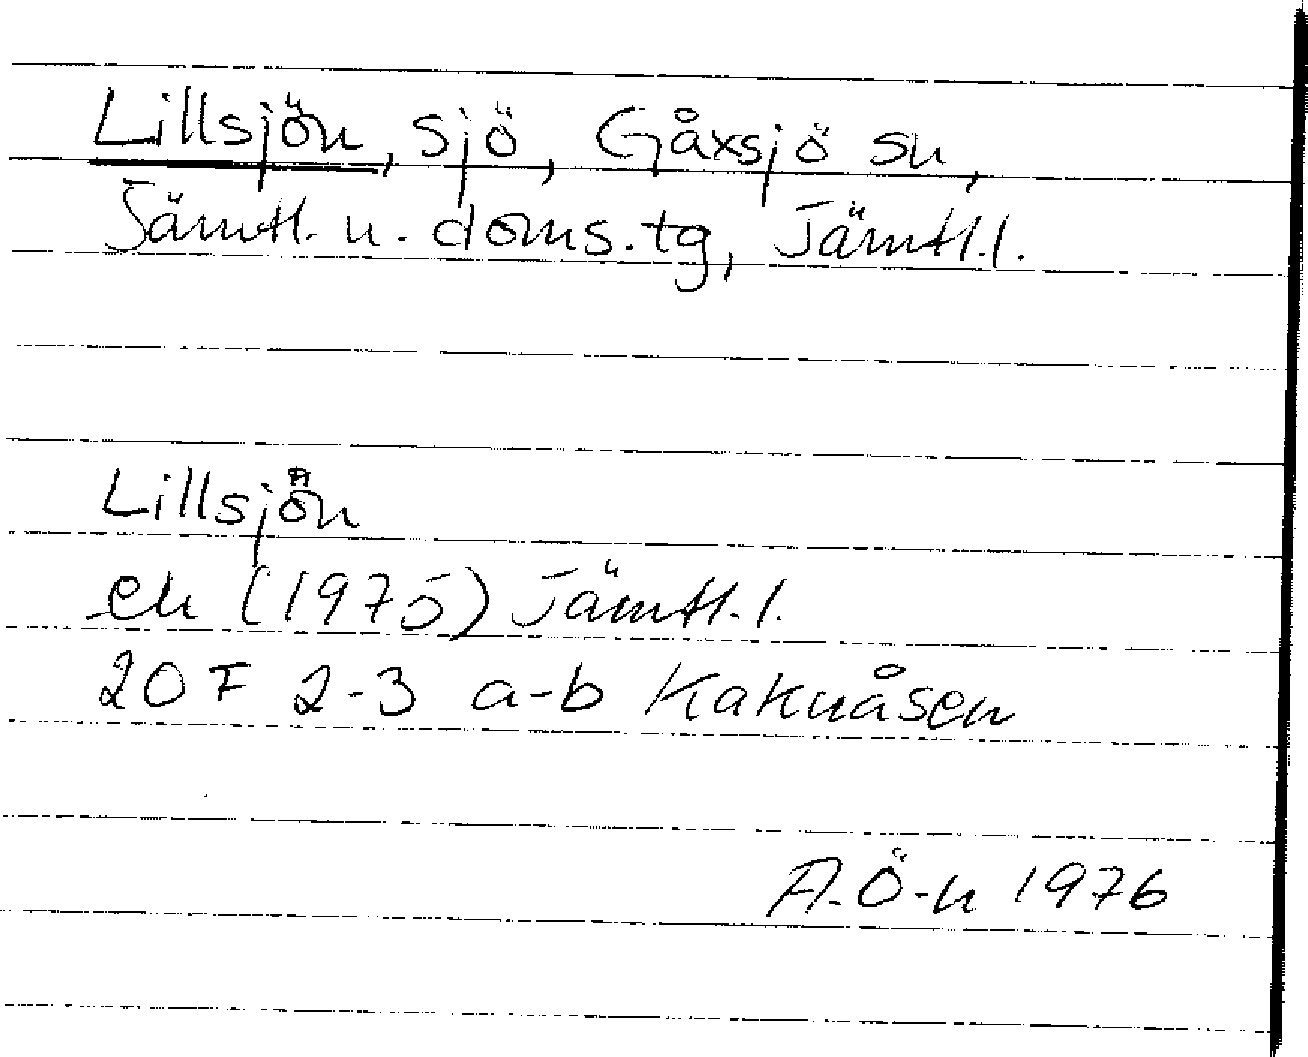 Lillsjön, sjö, Gåxsjö sn,
Jämtl. n. doms.tg, Jämtl.l.
Lillsjön
ek (1975) Jämtl.l.
20F 2-3 a-b Kaknåsen
A.Ö-n 1976